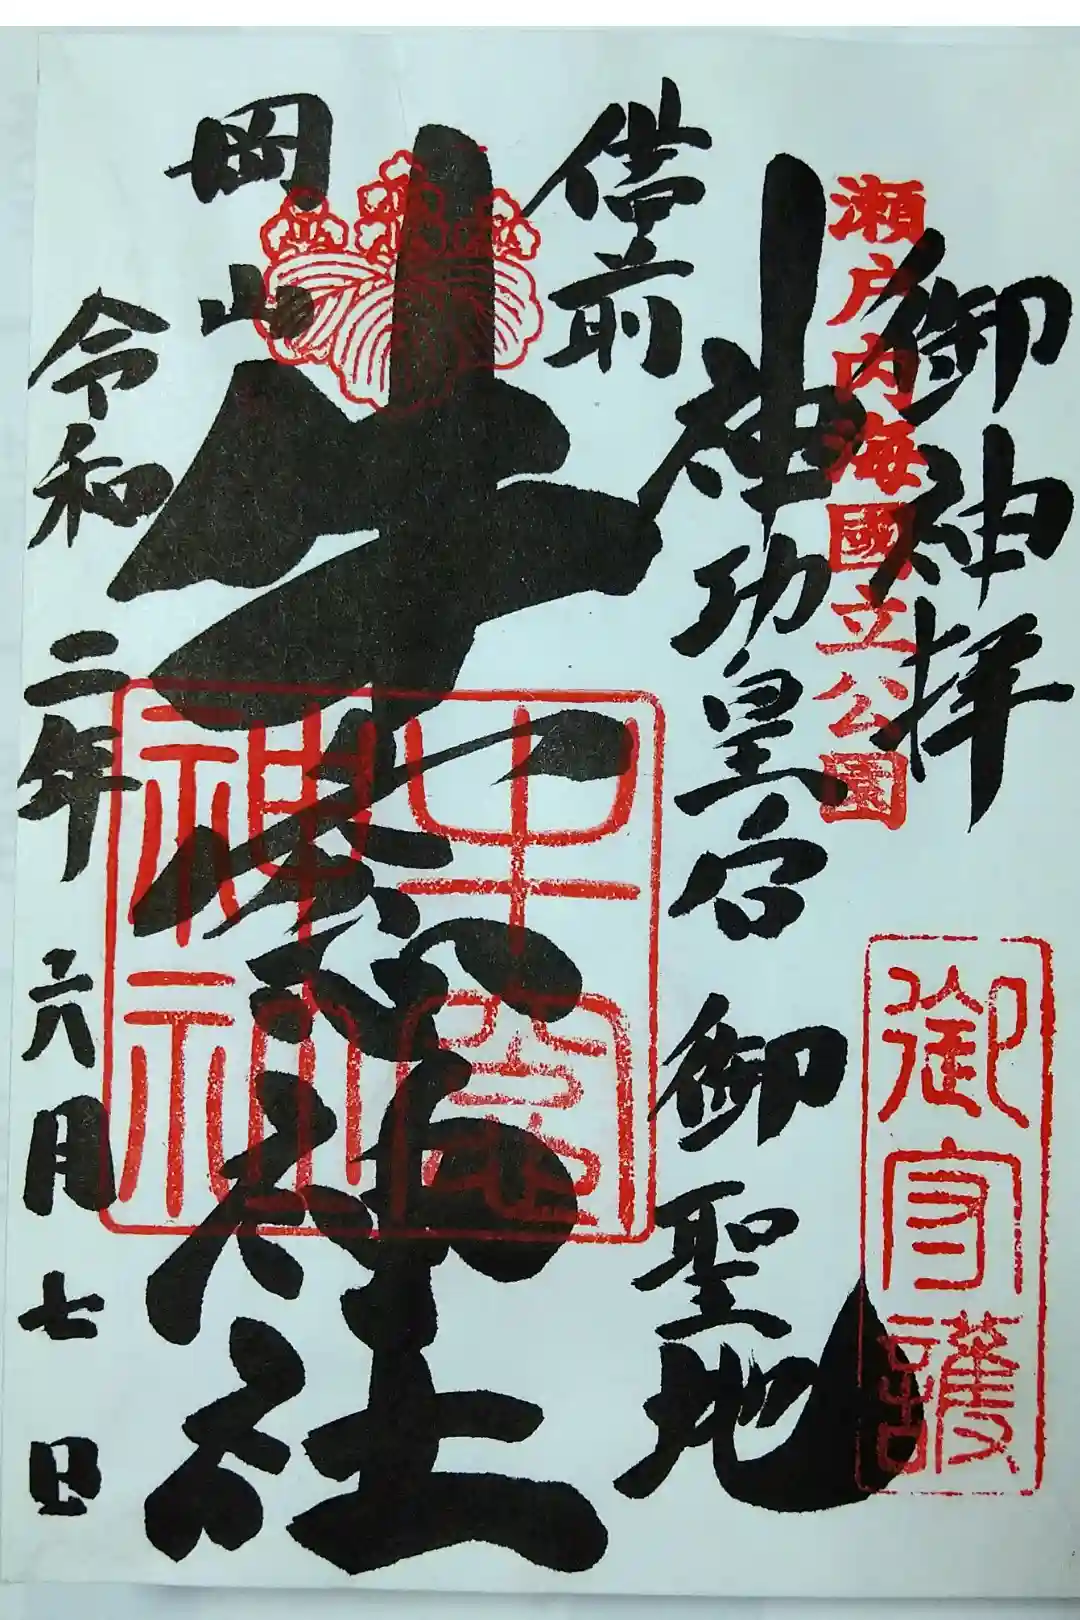 御神拝
瀬戸内海國立公園
御守護
神功皇后 御聖地
備前
牛窓神社
牛窓神社
岡山
令和二年六月七日